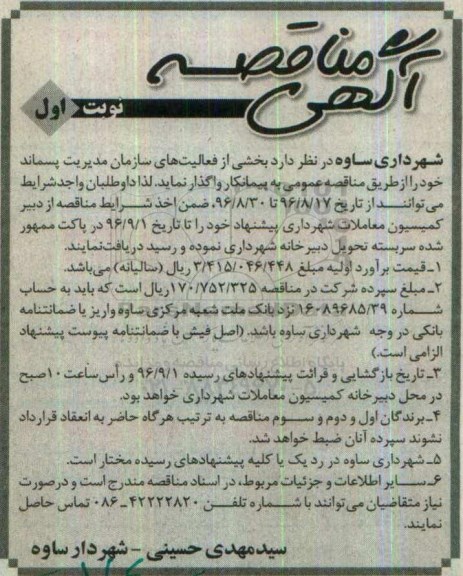 آگهی مناقصه
نوبت اول
شهرداری ساوه در نظر دارد بخشی از فعالیت‌های سازمان مدیریت پسماند
خود را از طریق مناقصه عمومی به پیمانکار واگذار نماید. لذا داوطلبان واجد شرایط
می‌توانند از تاریخ ۹۶/۸/۱۷ تا ۹۶/۸/۳۰، ضمن اخذ شرایط مناقصه از دبیر
کمیسیون معاملات شهرداری پیشنهاد خود را تا تاریخ ۹۶/۹/۱ در پاکت ممهور
شده سربسته تحویل دبیرخانه شهرداری نموده و رسید دریافت نمایند.
۱ـ قیمت برآورد اولیه مبلغ ۳/۴۱۵/۰۴۶/۴۴۸ ریال (سالیانه) می‌باشد.
۲ـ مبلغ سپرده شرکت در مناقصه ۱۷۰/۷۵۲/۳۲۵ ریال است که باید به حساب
شماره ۱۶۰۸۹۶۸۵/۳۹ نزد بانک ملت شعبه مرکزی ساوه واریز یا ضمانتنامه
بانکی در وجه شهرداری ساوه باشد. (اصل فیش یا ضمانتنامه پیوست پیشنهاد
الزامی است.)
۳ـ تاریخ بازگشایی و قرائت پیشنهادهای رسیده ۹۶/۹/۱ و رأس ساعت ۱۰ صبح
در محل دبیرخانه کمیسیون معاملات شهرداری خواهد بود.
۴ـ برندگان اول و دوم و سوم مناقصه به ترتیب هرگاه حاضر به انعقاد قرارداد
نشوند سپرده آنان ضبط خواهد شد.
۵ـ شهرداری ساوه در رد یک یا کلیه پیشنهادهای رسیده مختار است.
۶ـ سایر اطلاعات و جزئیات مربوط، در اسناد مناقصه مندرج است و در صورت
نیاز متقاضیان می‌توانند با شماره تلفن ۴۲۲۲۲۸۲۰ ـ ۰۸۶ تماس حاصل
نمایند.
سیدمهدی حسینی - شهردار ساوه